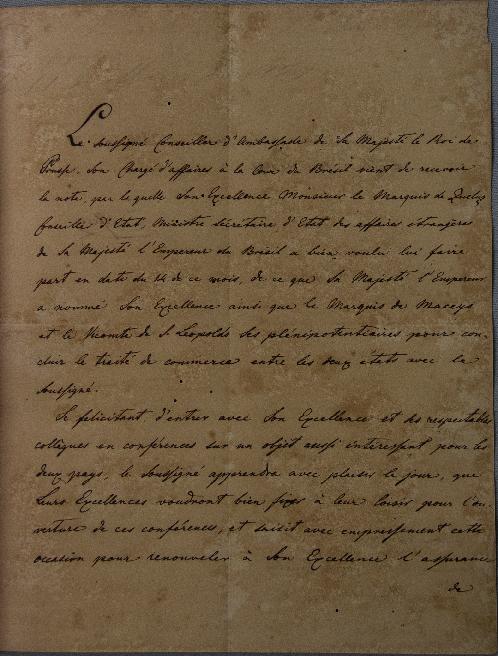 Le Soussigné Conseiller d'Ambassade de Sa Majesté le Roi de
Prusse, Son Chargé d'affaires à la Cour du Brésil vient de recevoir
la note, par la quelle Son Excellence Monsieur le Marquis de Queluz
Conseiller d'Etat, Ministre Sécrétaire d'Etat des affaires étrangères
de Sa Majesté l'Empereur du Brésil a bien voulu lui faire
part en date du 14 de ce mois, de ce que Sa Majesté l'Empereur
a nommé Son Excellence ainsi que le Marquis de Maceyo
et le Vicomte de S. Leopoldo Ses plénipotentiaires pour con-
clure le traité de commerce entre les deux états avec le
Soussigné.
Se felicitant d'entrer avec Son Excellence et Ses respectables
collègues en conférences sur un objet aussi intéressant pour les
deux pays, le Soussigné apprendra avec plaisir le jour, que
Leurs Excellences voudront bien fixer à leur loisir pour l'ou-
verture de ces conférences, et saisit avec empressement cette
occasion pour renouveler à Son Excellence l'assurance
de